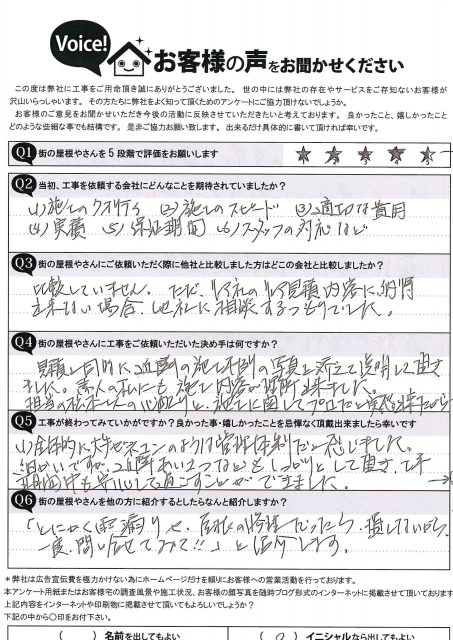 Voice!
お客様の声をお聞かせください
この度は弊社に工事をご用命頂き誠にありがとうございました。 世の中には弊社の存在やサービスをご存知ないお客様が
沢山いらっしゃいます。 その方たちに弊社をよく知って頂くためのアンケートにご協力頂けないでしょうか。
お客様のご意見をお聞かせいただき今後の活動に反映させていただきたいと考えております。 良かったこと、嬉しかったこと
どのような些細な事でも結構です。 是非ご協力お願い致します。 出来るだけ具体的に書いて頂ければ幸いです。
Q1 街の屋根やさんを5段階で評価をお願いします
1 2 3 4 5
Q2 当初、工事を依頼する会社にどんなことを期待されていましたか?
(1)施工のクオリティ (2)施工のスピード (3)適切な費用
(4)実積 (5)保証期間 (6)スタッフの対応など
Q3 街の屋根やさんにご依頼いただく際に他社と比較しました方はどこの会社と比較しましたか?
比較していません。ただ、の見積内容に納得
出来ない場合、他社に相談するつもりでした。
Q4 街の屋根やさんに工事をご依頼いただいた決め手は何ですか?
見積と同時に近隣の施工例の写真と添えて説明して頂き
ました。素人の私にも施工内容が理解出来ました。
担当の松本さんの心配りと、施工に関してプロだと
Q5 工事が終わってみていかがですか?良かった事・嬉しかったことを忌憚なく頂戴出来ましたら幸いです
(1)全体的に大手ゼネコンのような管理体制だと感じました。
細かいですが、近隣あいさつなどもしっかりとして頂き、工事
期間中も安心して過すことができました。
Q6 街の屋根やさんを他の方に紹介するとしたらなんと紹介しますか?
「とにかく雨漏りや、屋根の修理だったら、損しないから、
一度、問い合せてみて!!」と紹介します。
*弊社は広告宣伝費を極力かけない為にホームページだけを頼りにお客様への営業活動を行っております。
本アンケート用紙またはお客様宅の調査風景や施工状況、お客様の顔写真を随時ブログ形式のインターネットに掲載させて頂いております
上記内容をインターネットや印刷物に掲載させて頂いてもよろしいでしょうか?
下記の中から○印をお付下さい。
( ) 名前を出してもよい ( ○ ) イニシャルなら出してもよい